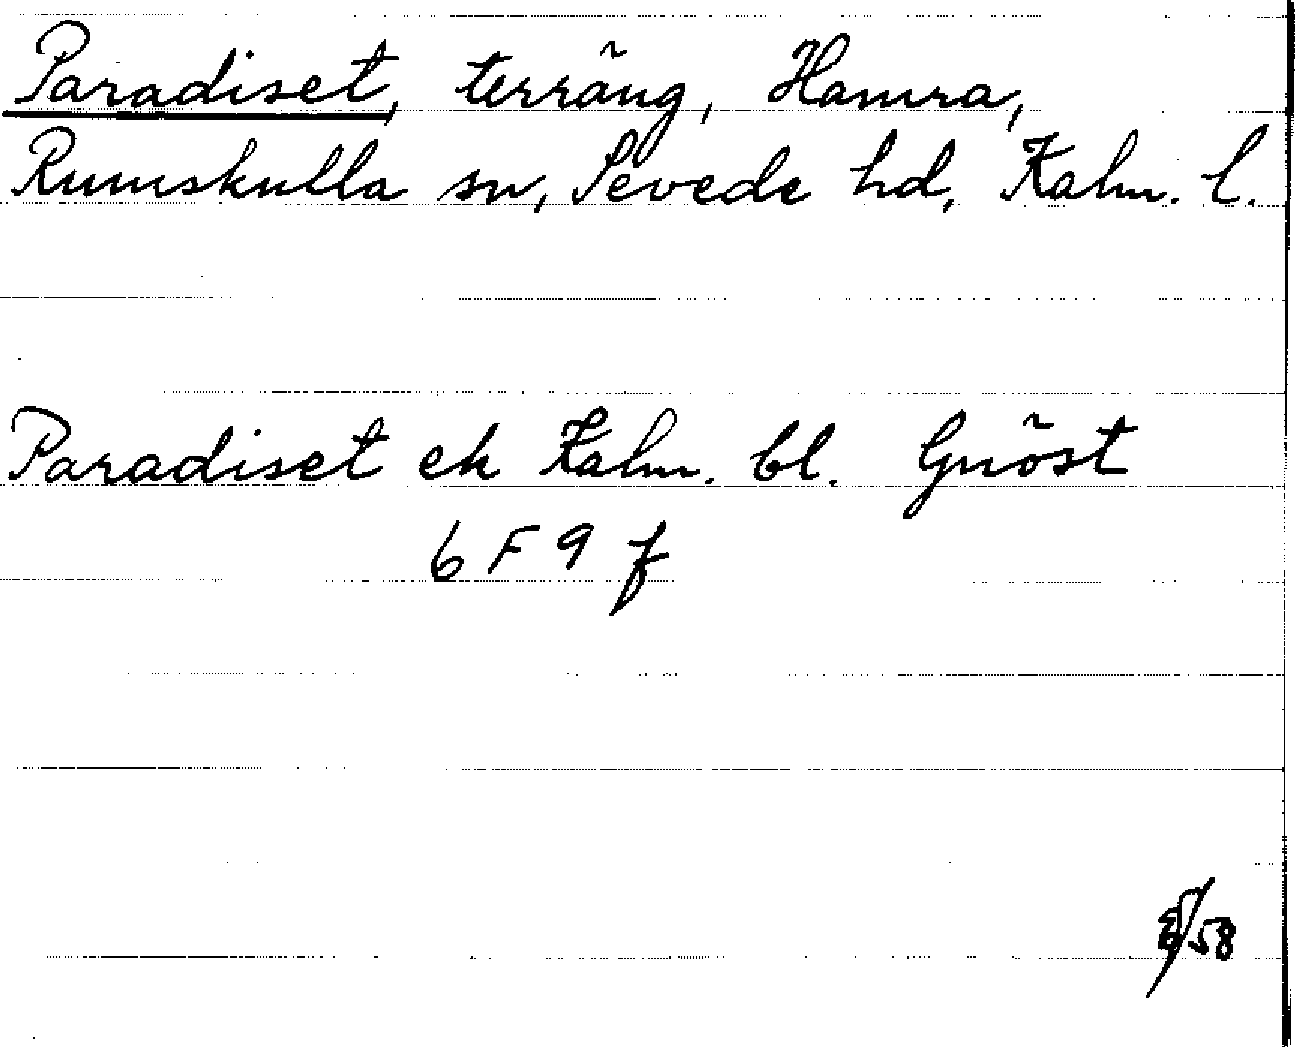 Paradiset, terräng, Hamra,
Rumskulla sn, Sevede hd, Kalm. l.
Paradiset ek Kalm. bl. Gnöst
6 F 9 f
/58